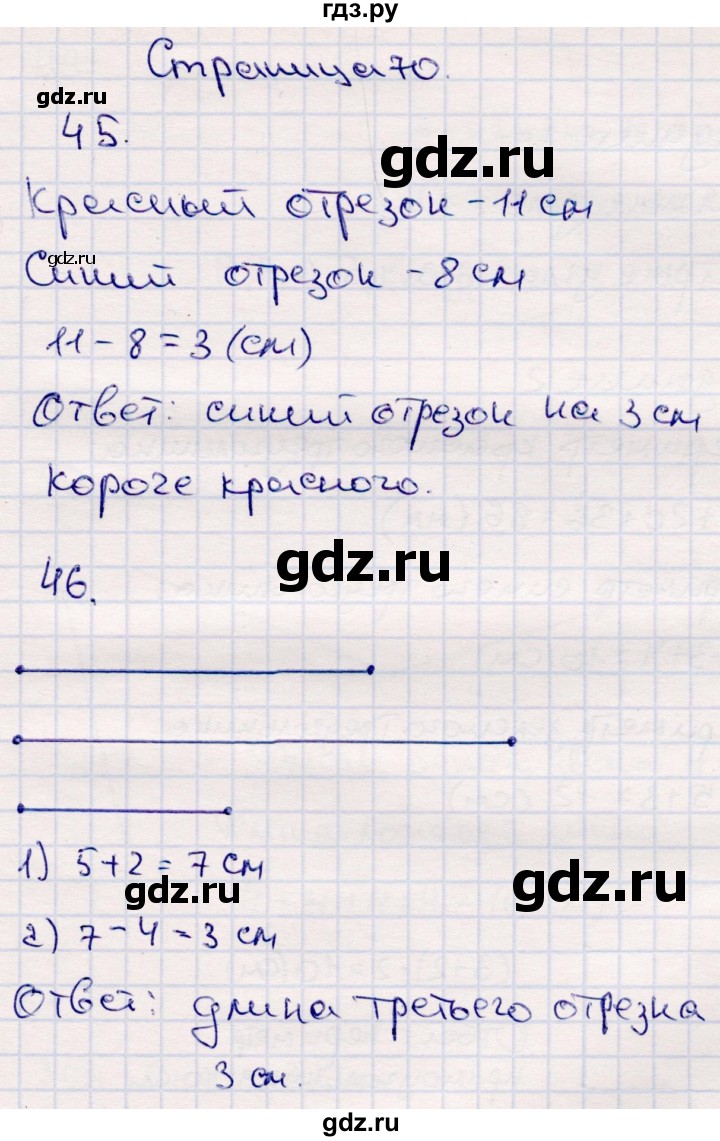 гдз.ру
Страница 70.
gdz.ru
45.
gdz.ru
Красный отрезок - 11 см
gdz.ru
Синий отрезок - 8 см
11 - 8 = 3 (см)
Ответ: синий отрезок на 3 см
короче красного.
gdz.ru
46.
1) 5+2 = 7 см
gdz.ru
gdz.ru
2) 7 - 4 = 3 см
Ответ: длина третьего отрезка
3 см.
gdz.ru